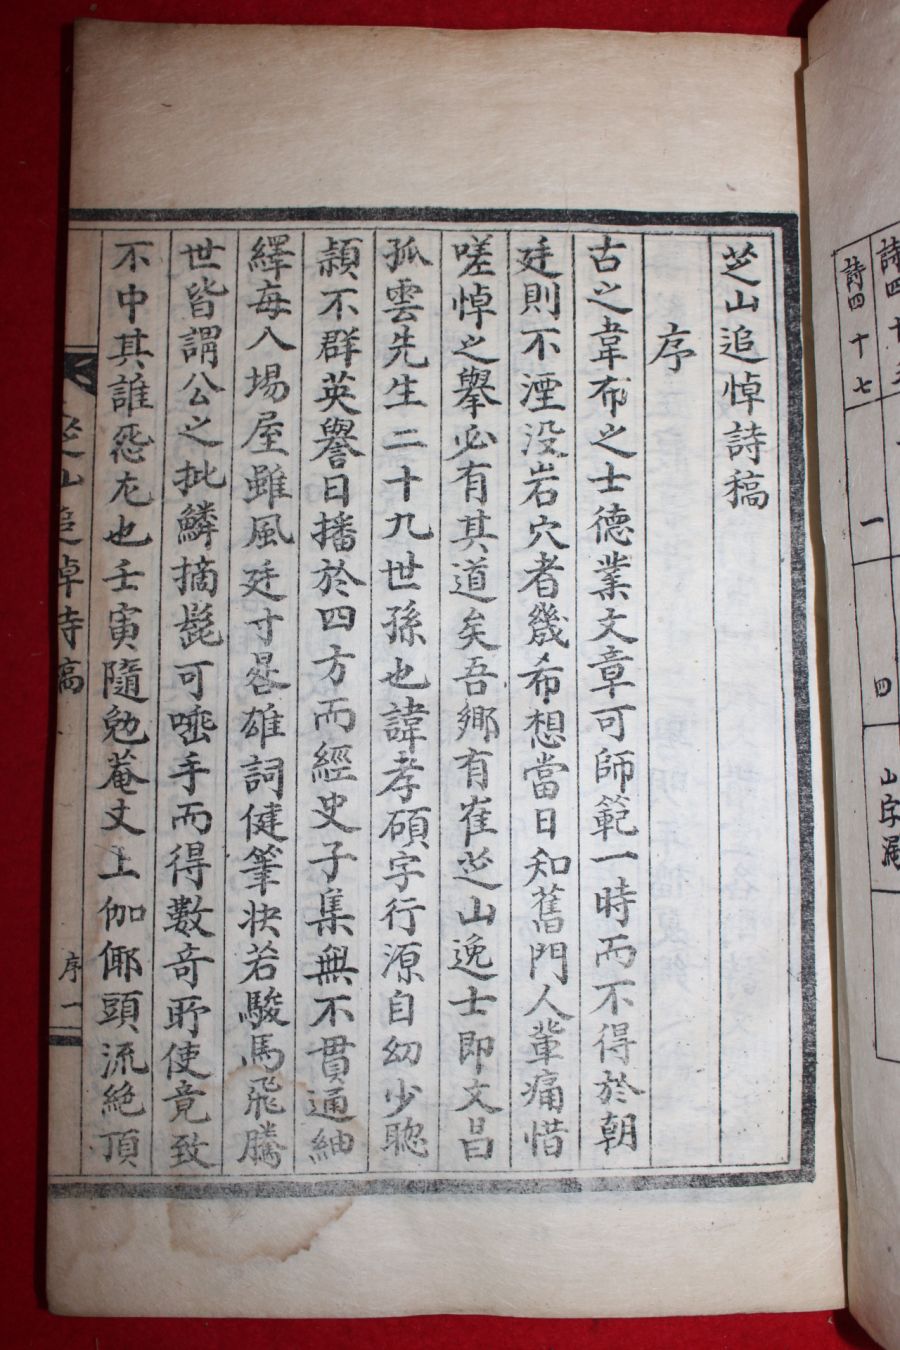 詩四十
詩四十七
一
四
山字漏
芝山追悼詩稿
序
古之韋布之士德業文章可師範一時而不得於朝
廷則不湮没岩穴者幾希想當日知舊門人輩痛惜
嗟悼之擧必有其道矣吾鄉有崔芝山逸士即文昌
孤雲先生二十九世孫也諱孝碩字行源自幼少聡
頴不群英譽日播於四方而經史子集無不貫通紬
繹每入場屋雖風廷寸晷雄詞健筆快若駿馬飛騰
世皆謂公之批鱗摘髭可唾手而得數奇所使竟致
不中其誰怨尤也壬寅隨勉菴丈上伽倻頭流絶頂
芝山追悼詩稿
序一